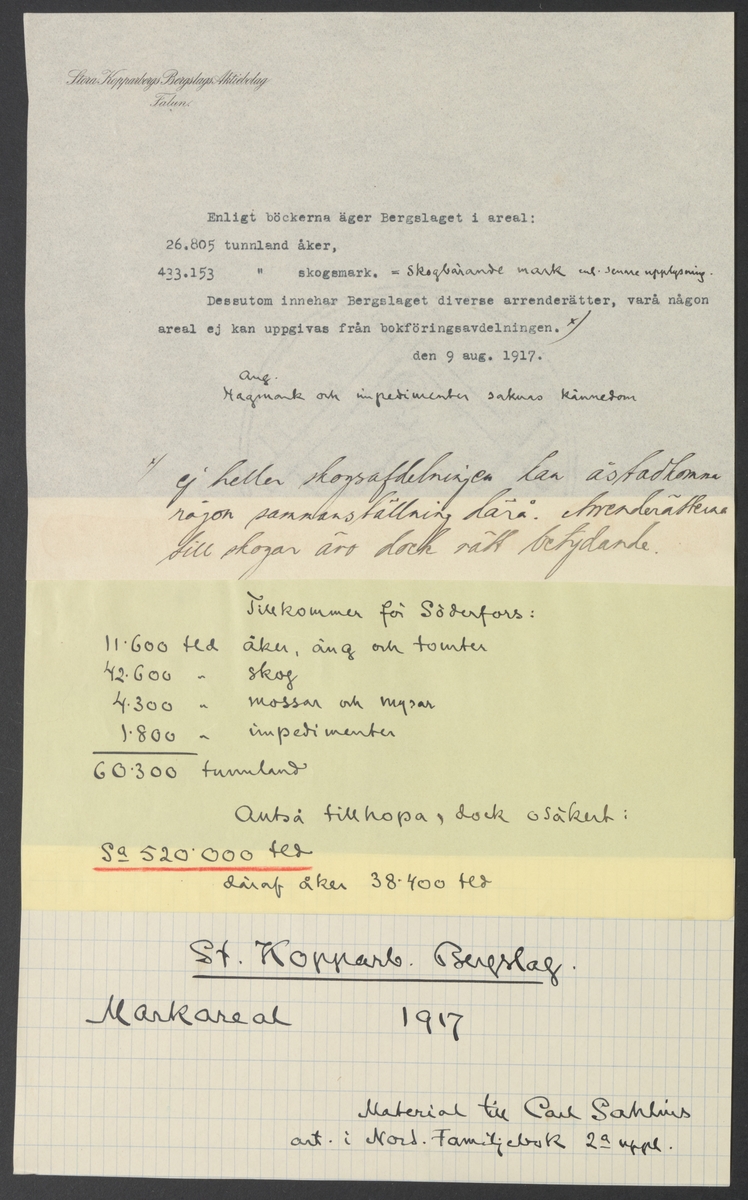 Stora Kopparbergs Bergslags Aktiebolag
Falun.
Enligt böckerna äger Bergslaget i areal:
26.805 tunnland åker,
433.153 " skogsmark. = Skogbärande mark enl. senare upplysning.
Dessutom innehar Bergslaget diverse arrenderätter, varå någon
areal ej kan uppgivas från bokföringsavdelningen. x)
den 9 aug. 1917.
Ang.
Hagmark och impedimenter saknas kännedom
x) ej heller skogsafdelningen kan åstadkomma
någon sammanställning härå. Arrenderätterna
till skogar äro dock rätt betydande.
Tillkommer för Söderfors:
11.600 tld åker, äng och tomter
42.600 " skog
4.300 " mossar och myrar
1.800 " impedimenter
60.300 tunnland
Alltså tillhopa, dock osäkert:
Sa 520.000 tld
däraf åker 38.400 tld
St. Kopparb. Bergslag.
Markareal 1917
Material till Carl Sahlins
art. i Nord. Familjebok 2a uppl.